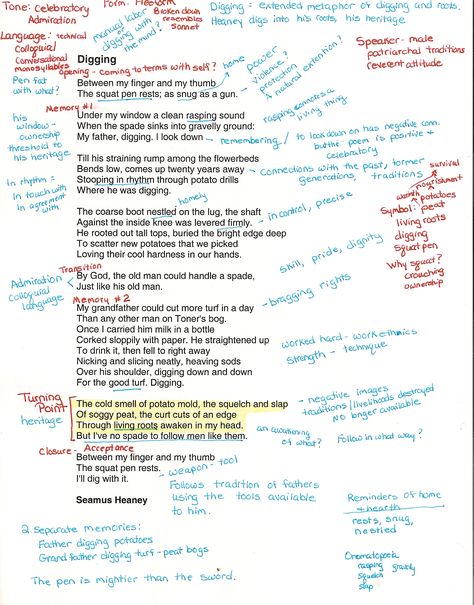 Tone: Celebratory
Admiration
Form: Freeform
Broken down
resembles
sonnet
Digging = extended metaphor of digging and roots.
Heaney digs into his roots, his heritage
Language: technical
Colloquial
Conversational
monosyllables
manual labor
or
digging with
the mind?
Speaker - male
patriarchal traditions
reverent attitude
opening - coming to terms with self?
home
power
violence?
protection &
a natural extention?
Pen fat
with what?
Digging
Between my finger and my thumb
The squat pen rests; as snug as a gun.
Memory #1
Under my window a clean rasping sound
When the spade sinks into gravelly ground:
My father, digging. I look down
rasping comes a
living thing
remembering
to look down on has negative conn.
but the poem is positive +
celebratory
his
window -
ownership
threshold to
his heritage
Till his straining rump among the flowerbeds
Bends low, comes up twenty years away
Stooping in rhythm through potato drills
Where he was digging.
Connections with the past, former
generations, traditions
survival
nourishment
warmth
potatoes
Symbol: peat
living roots
digging
squat pen
Why squat?
crouching
ownership
In rhythm =
in touch with
in agreement
with
homely
The coarse boot nestled on the lug, the shaft
Against the inside knee was levered firmly.
He rooted out tall tops, buried the bright edge deep
To scatter new potatoes that we picked
Loving their cool hardness in our hands.
in control, precise
skill, pride, dignity
Transition
Admiration
Colloquial
language
By God, the old man could handle a spade,
Just like his old man.
bragging rights
Memory #2
My grandfather could cut more turf in a day
Than any other man on Toner's bog.
Once I carried him milk in a bottle
Corked sloppily with paper. He straightened up
To drink it, then fell to right away
Nicking and slicing neatly, heaving sods
Over his shoulder, digging down and down
For the good turf. Digging.
worked hard - work ethnics
strength - technique
Turning
Point
heritage
The cold smell of potato mold, the squelch and slap
Of soggy peat, the curt cuts of an edge
Through living roots awaken in my head.
But I've no spade to follow men like them.
negative images
traditions/livelihoods destroyed
No longer available
an awakening
of what?
Follow in what way?
Closure - Acceptance
Between my finger and my thumb
The squat pen rests.
I'll dig with it.
weapon - tool
Follows tradition of fathers
using the tools available
to him.
Seamus Heaney
Reminders of home
+ hearth
rests, snug,
nestled
2 separate memories:
Father digging potatoes
Grand father digging turf - peat bogs
The pen is mightier than the sword.
Onomatopoeia
rasping gravelly
squelch
slap